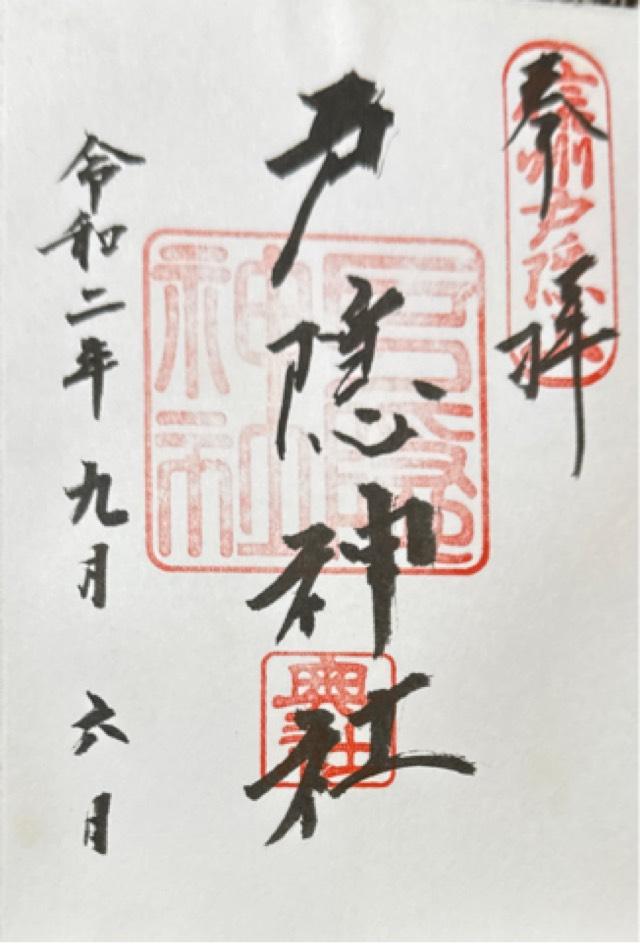 奉拝
信州戸隠
戸隠神社
戸隠神社
奥社
令和二年九月六日